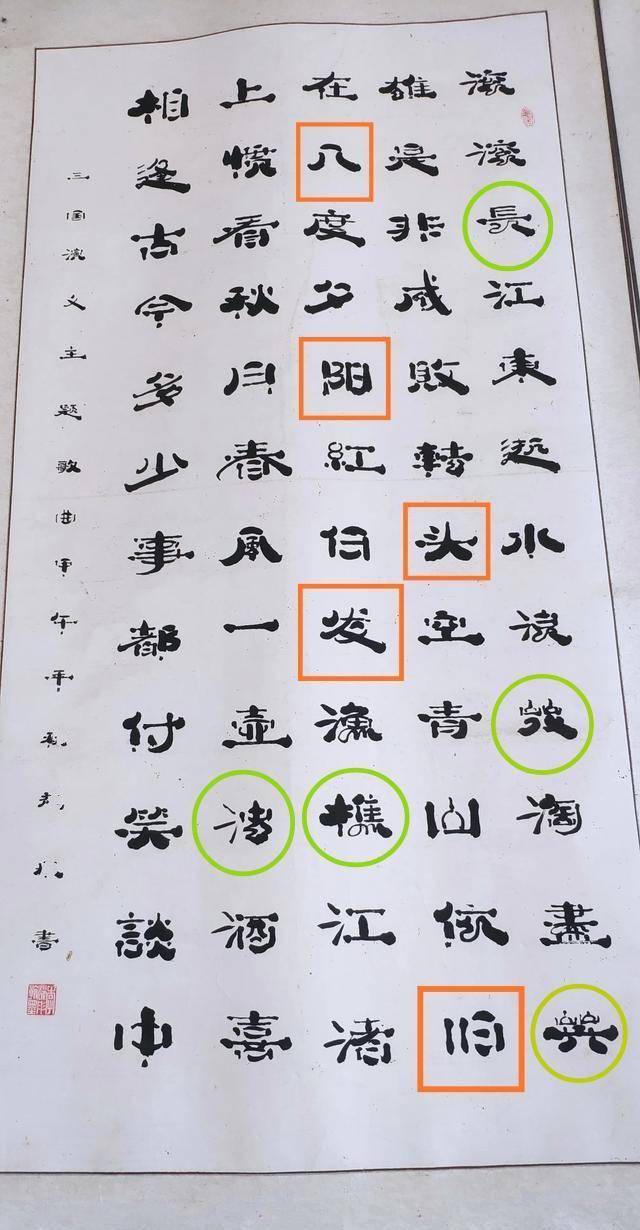 滚滚長江東逝水浪花淘盡英
雄是非成敗轉头空青山依旧
在几度夕阳紅白发漁樵江渚
上慣看秋月春風一壺濁酒喜
相逢古今多少事都付笑談中
三国演义主题歌曲甲午年書